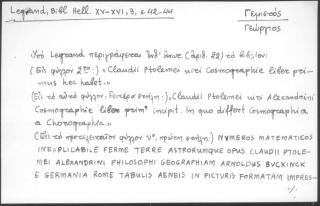 Legrand, Bibl Hell. XV-XVI, 3, σ. 42-44
Γεμιστός
Γεώργιος
Ὑπὸ Legrand περιγράφεται (ἀριθ. 22) τὸ βιβλίον:
(Εἰς φύλλον 2ον:) «Claudii Ptolemei viri Cosmographie liber pri-
mus hec habet.»
(Εἰς τὸ αὐτὸ φύλλον,) «Claudii Ptolemei viri Alexandrini
Cosmographie liber prim' incipit. In quo differt Cosmographia
a Chorographia.»
(Εἰς τὸ φύλλον) NUMEROS MATEMATICOS
INEXPLICABILE FERME TERRE ASTRORUMQUE OPUS CLAUDII PTOLE-
MEI ALEXANDRINI PHILOSOPHI GEOGRAPHIAM ARNOLDUS BVCKINCK
E GERMANIA ROME TABULIS AENEIS IN PICTURIS FORMATAM IMPRES-
./.